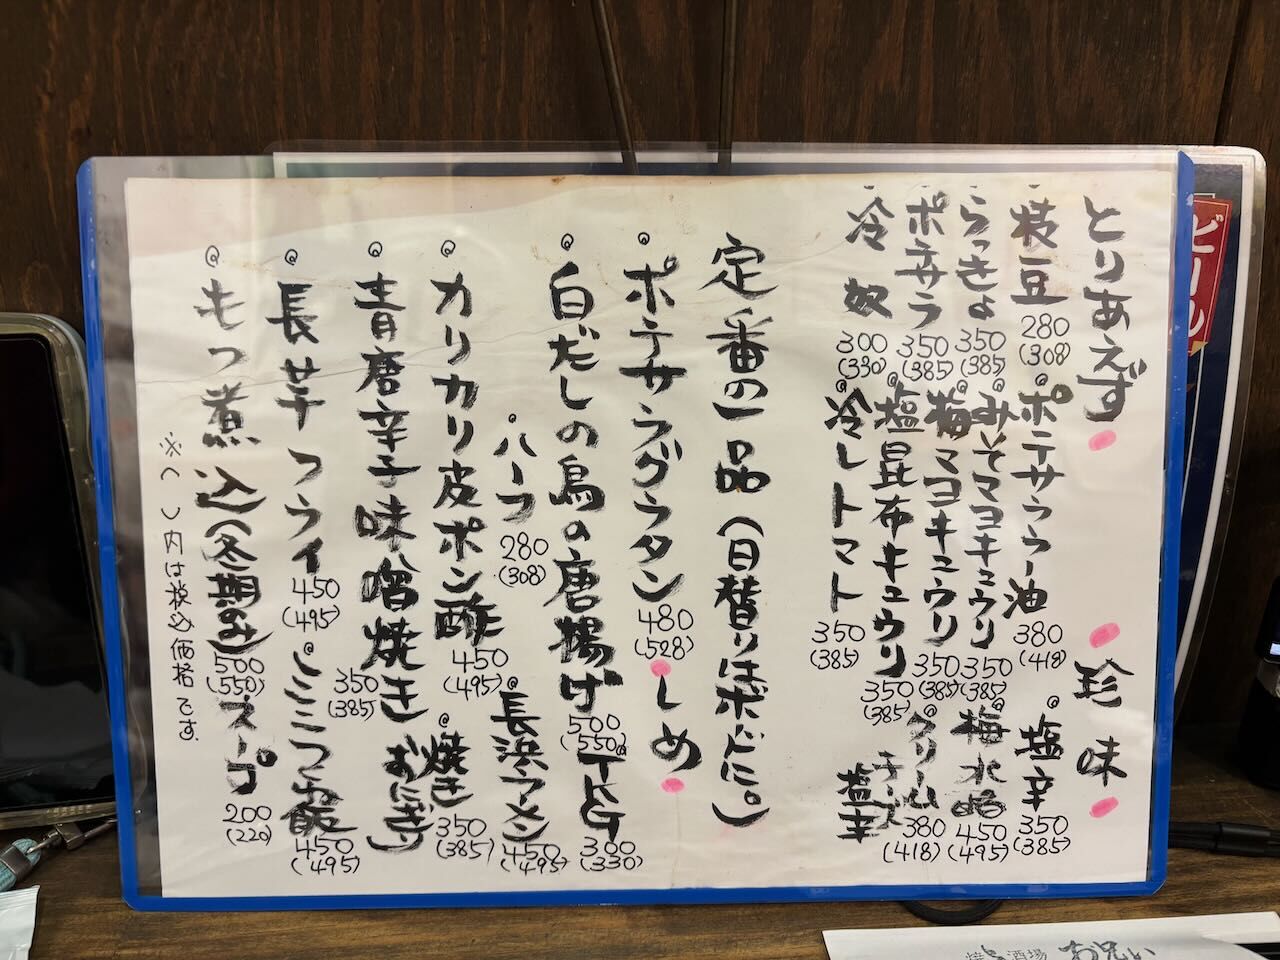 とりあえず
枝豆 280 (308)
らっきょ 350 (385)
ポテサラ 350 (385)
冷奴 300 (330)
ポテサララー油 380 (418)
みそマヨキュウリ 350 (385)
梅マヨキュウリ 350 (385)
塩昆布キュウリ 350 (385)
冷しトマト 350 (385)
珍味
塩辛 350 (385)
梅水晶 450 (495)
クリームチーズ塩辛 380 (418)
定番の一品(日替りはボードに。)
ポテサラグラタン 480 (528)
白だしの鳥の唐揚げ 500 (550)
ハーフ 280 (308)
カリカリ皮ポン酢 450 (495)
青唐辛子味噌焼き 350 (385)
長芋フライ 450 (495)
もつ煮込(冬期のみ) 500 (550)
しめ
TKG 300 (330)
長浜ラーメン 450 (495)
焼きおにぎり 350 (385)
ミミつ飯 450 (495)
スープ 200 (220)
※( )内は税込価格です。
ビール
酒場